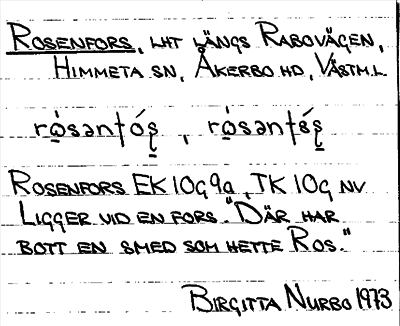 ROSENFORS, LHT LÄNGS RABOVÄGEN,
HIMMETA SN, ÅKERBO HD, VÄSTM.L.
ROSENFORS EK 10G9a, TK 10G NV
LIGGER VID EN FORS. "DÄR HAR
BOTT EN SMED SOM HETTE ROS."
BIRGITTA NURBO 1973